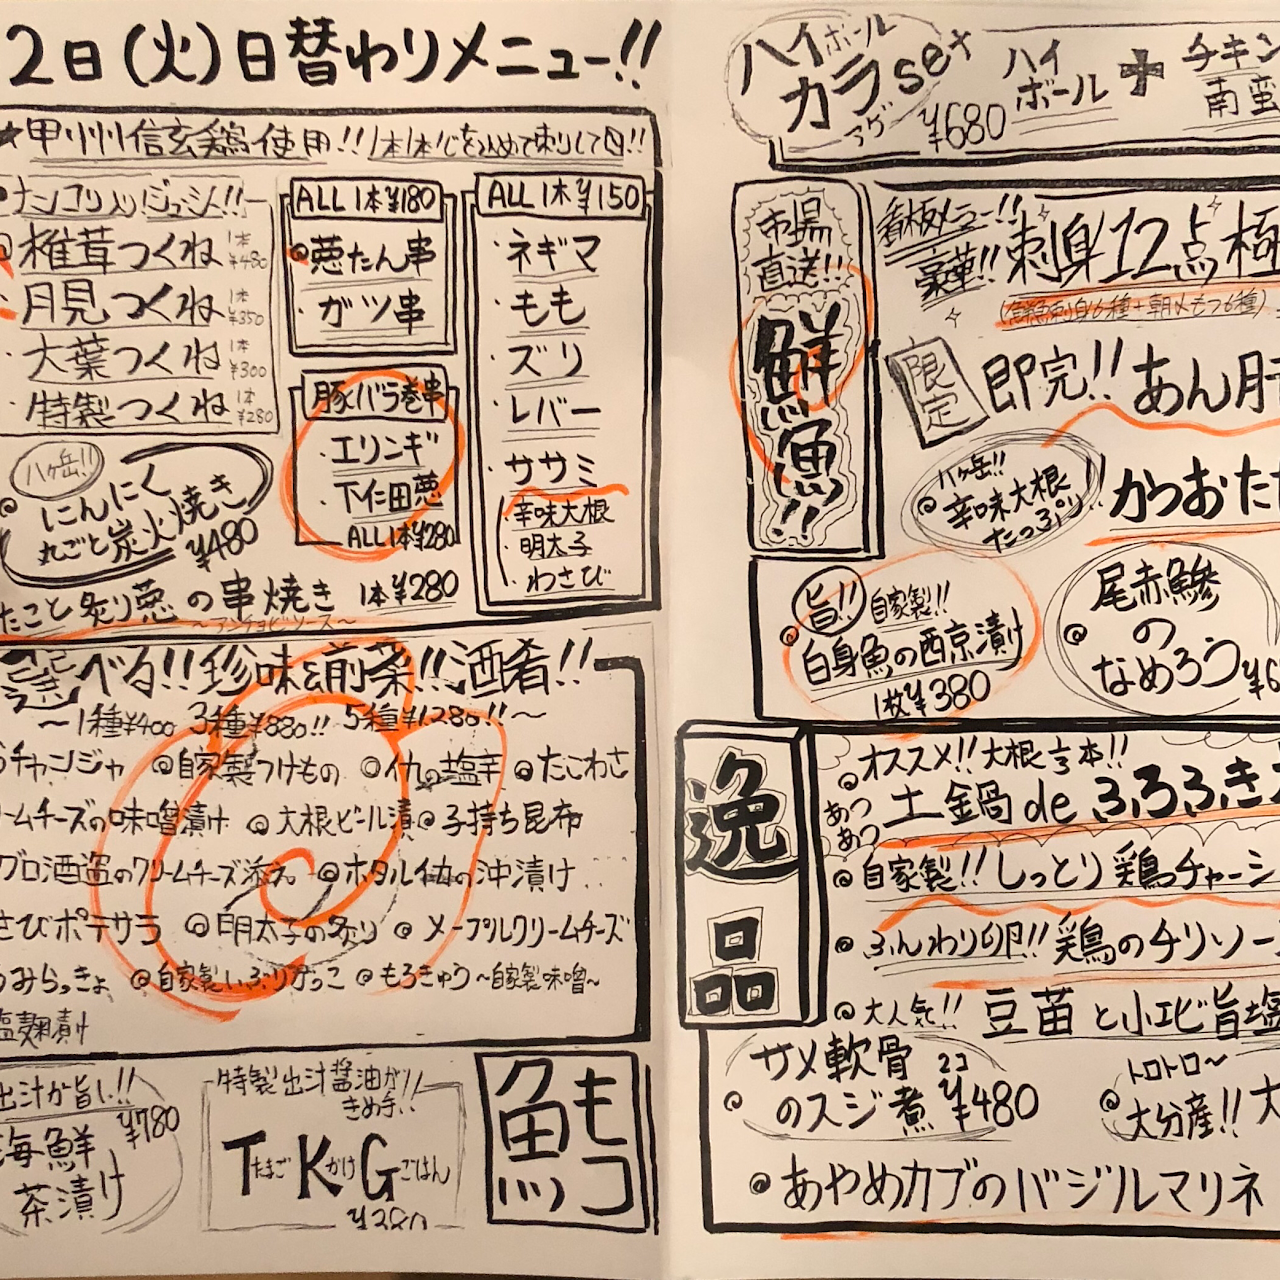 2日(火)日替わりメニュー!!
★甲州信玄鶏使用!!1本1本心を込めて刺して〼!!
ナンコツ入りジューシー!!
◎椎茸つくね 1本¥480
・月見つくね 1本¥350
・大葉つくね 1本¥300
・特製つくね 1本¥280
ALL1本¥180
◎葱たん串
・ガツ串
豚バラ巻串
・エリンギ
・下仁田葱
ALL1本¥280
ALL1本¥150
・ネギマ
・もも
・ズリ
・レバー
・ササミ
・辛味大根
・明太子
・わさび
八ヶ岳!!
◎にんにく
丸ごと炭火焼き
¥480
たこと炙り葱の串焼き 1本¥280
~アンチョビソース~
べる!!珍味&前菜!!酒肴!!
~1種¥400 3種¥880!! 5種¥1280!!~
チャンジャ ◎自家製つけもの ◎イカの塩辛 ◎たこわさ
ームチーズの味噌漬け ◎大根ビール漬 ◎子持ち昆布
グロ酒盗のクリームチーズ添え ◎ホタルイカの沖漬け
さびポテサラ ◎明太子の炙り ◎メープルクリームチーズ
うみらっきょ ◎自家製いぶりがっこ ◎もろきゅう~自家製味噌~
塩麹漬け
出汁が旨い!!
¥780
海鮮
茶漬け
特製出汁醤油が!!
きめ手!!
TたまごKかけGごはん
¥380
魚もつ
ハイボール
カラアゲset
¥680
ハイ
ボール
+
チキン
南蛮
市場
直送!!
鮮魚!!
看板メニュー!!
豪華!!刺身12点極
(鮮魚刺身6種+朝〆もつ6種)
限定
即完!!あん肝
八ヶ岳!!
◎辛味大根
たっぷり!!
かつおたた
旨!!自家製!!
◎白身魚の西京漬け
1枚¥380
尾赤鯵
◎の
なめろう¥6
逸品
◎オススメ!!大根1/3本!!
あつあつ土鍋deふろふき大
◎自家製!!しっとり鶏チャーシ
◎ふんわり卵!!鶏のチリソー
◎大人気!!豆苗と小エビ旨塩
◎サメ軟骨
のスジ煮 2コ¥480
トロトロ~
◎大分産!!大
◎あやめカブのバジルマリネ